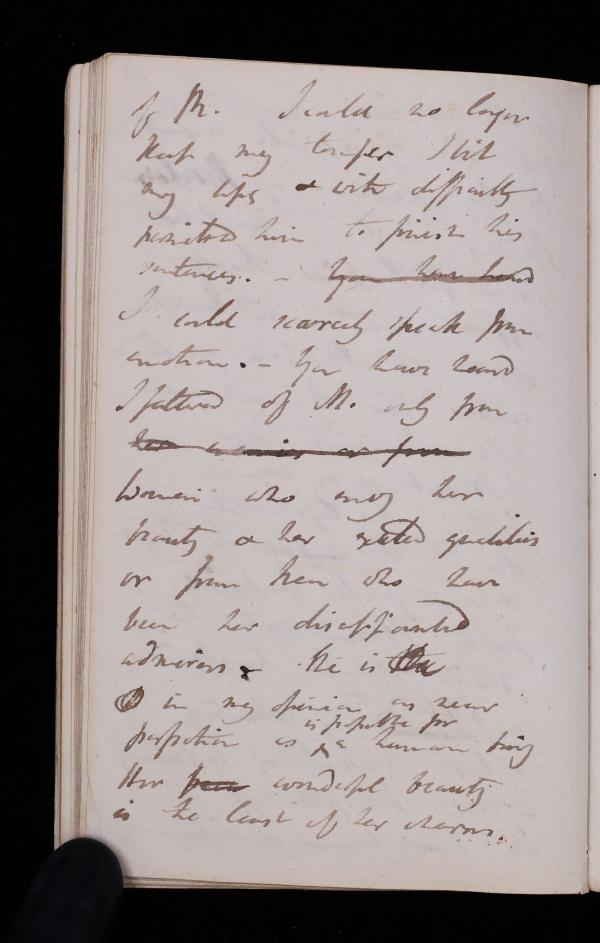 of M. I could no longer
keep my temper I bit
my lips & with difficulty
permitted him to finish his
sentences. - You have heard
I could scarcely speak from
emotion. - You have heard
I faltered of M. only from
her enemies or from
Women who envy her
beauty & her exalted qualities
or from men who have
been her disappointed
admirers & She is the
in my opinion as near
is possible for
perfection as a human being
Her wonderful beauty
is the least of her charms.